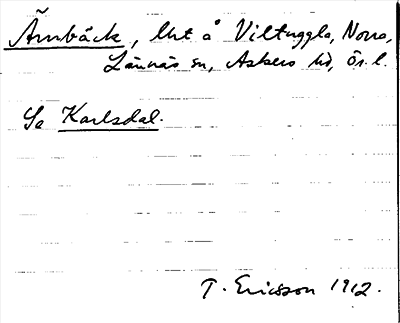 Ämbäck, lht å Viltuggla, Norra,
Lännäs sn, Askers hd, Ör. l.
Se Karlsdal.
T. Ericsson 1912.